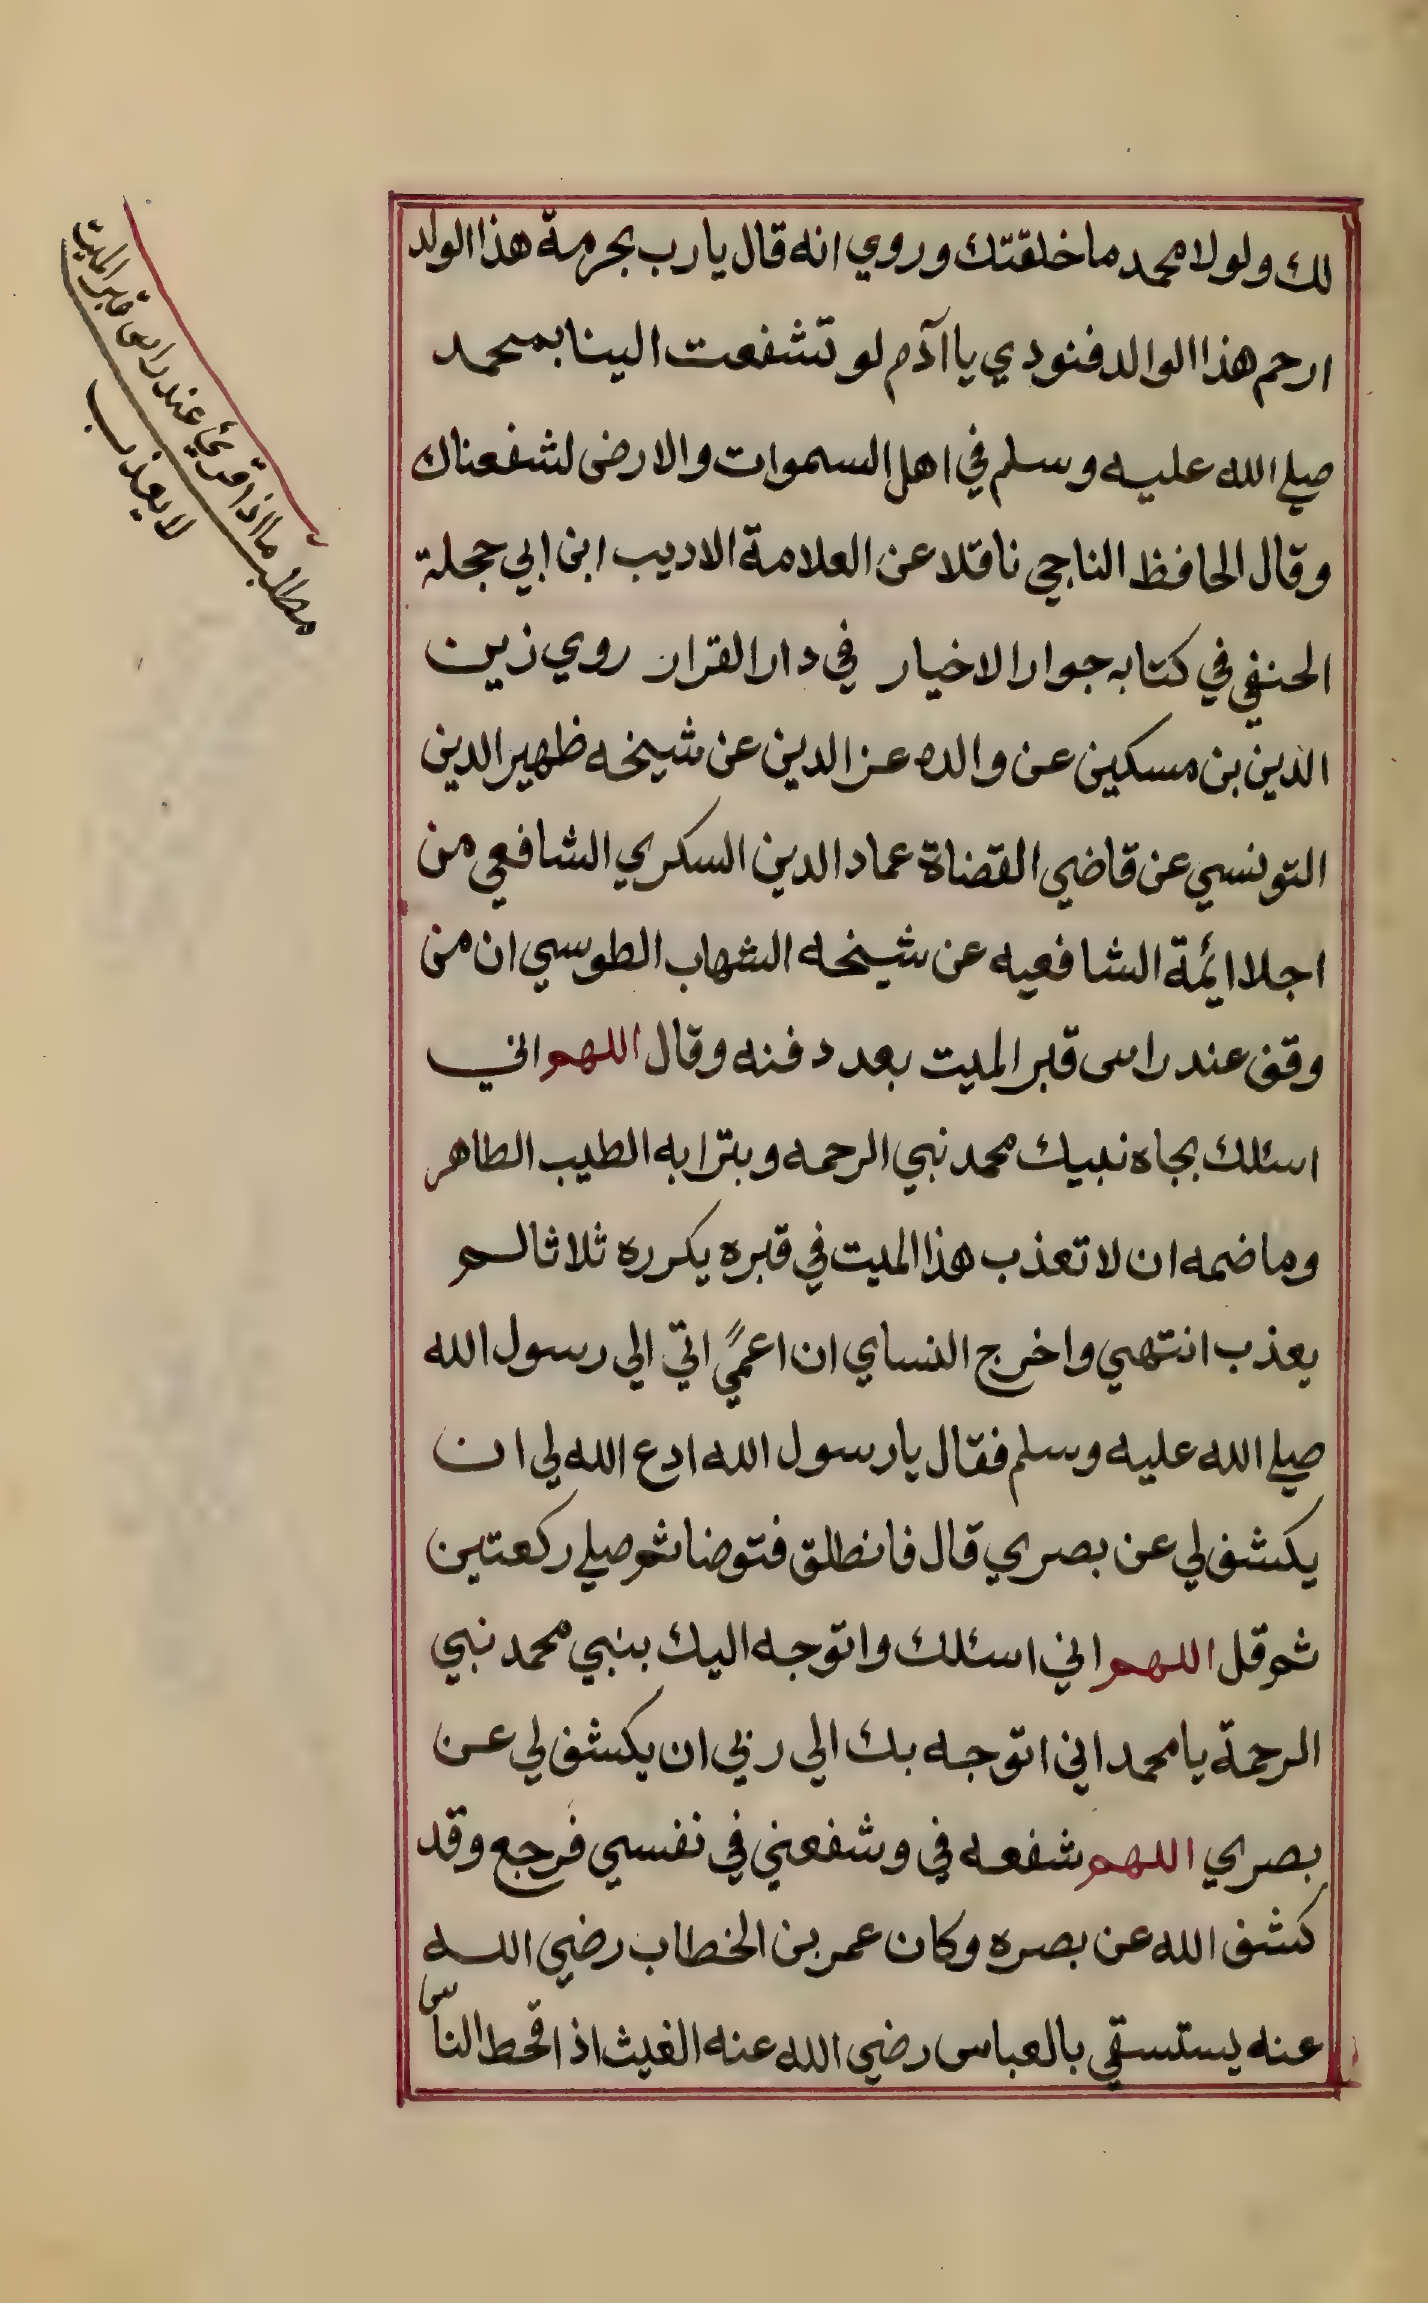 لك ولولا محمد ما خلقتك وروي انه قال يارب بحرمة هذا الولد
ارحم هذا الوالد فنودي يا آدم لو تشفعت الينا بمحمد
صلي الله عليه وسلم في اهل السموات والارض لشفعناك
وقال الحافظ الناجي ناقلا عن العلامة الاديب ابن ابي حجلة
الحنفي في كتابه جوار الاخيار في دار القرار روي زين
الدين بن مسكين عن والده عز الدين عن شيخه ظهير الدين
التونسي عن قاضي القضاة عماد الدين السكري الشافعي من
اجلا ائمة الشافعيه عن شيخه الشهاب الطوسي ان من
وقف عند راس قبر الميت بعد دفنه وقال اللهم اني
اسئلك بجاه نبيك محمد نبي الرحمه وبترابه الطيب الطاهر
وما ضمه ان لا تعذب هذا الميت في قبره يكرره ثلاثا لم
يعذب انتهي واخرج النساي ان اعميً اتي الي رسول الله
صلي الله عليه وسلم فقال يا رسول الله ادع الله لي ان
يكشف لي عن بصري قال فانطلق فتوضا ثم صلي ركعتين
ثم قل اللهم اني اسئلك واتوجه اليك بنبي محمد نبي
الرحمة يا محمد اني اتوجه بك الي ربي ان يكشف لي عن
بصري اللهم شفعه في وشفعني في نفسي فرجع وقد
كشف الله عن بصره وكان عمر بن الخطاب رضي الله
عنه يستسقي بالعباس رضي الله عنه الغيث اذا قحط الناس
مطلب ما اذا قرئ عند راس قبر الميت
لا يعذب